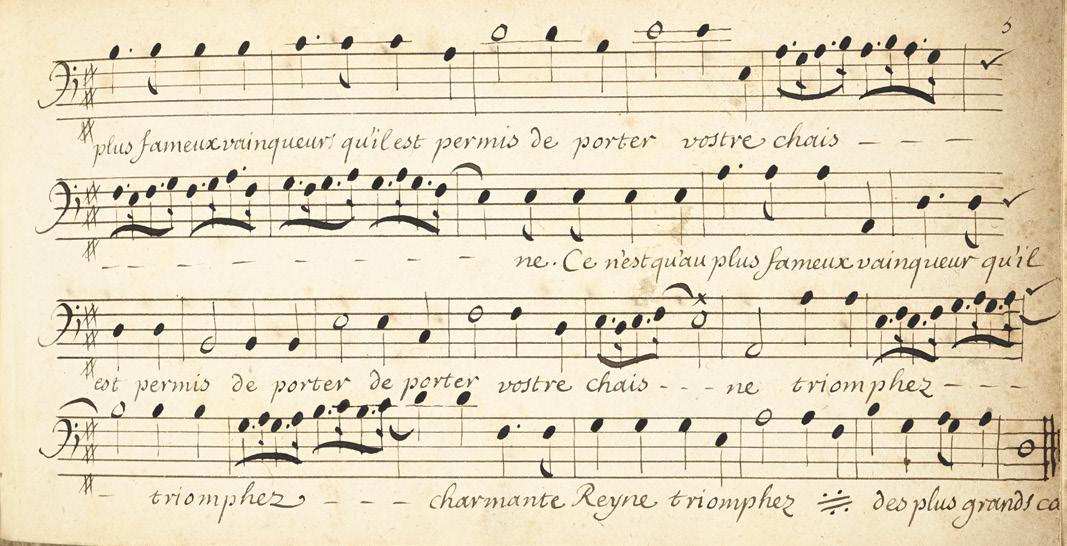 5
plus fameux vainqueurs qu'il est permis de porter vostre chais - - -
- - - - - - - - ne. Ce n'est qu'au plus fameux vainqueur qu'il
est permis de porter de porter vostre chais - - - ne triomphez - - - -
- triomphez - - - charmante Reyne triomphez des plus grands co